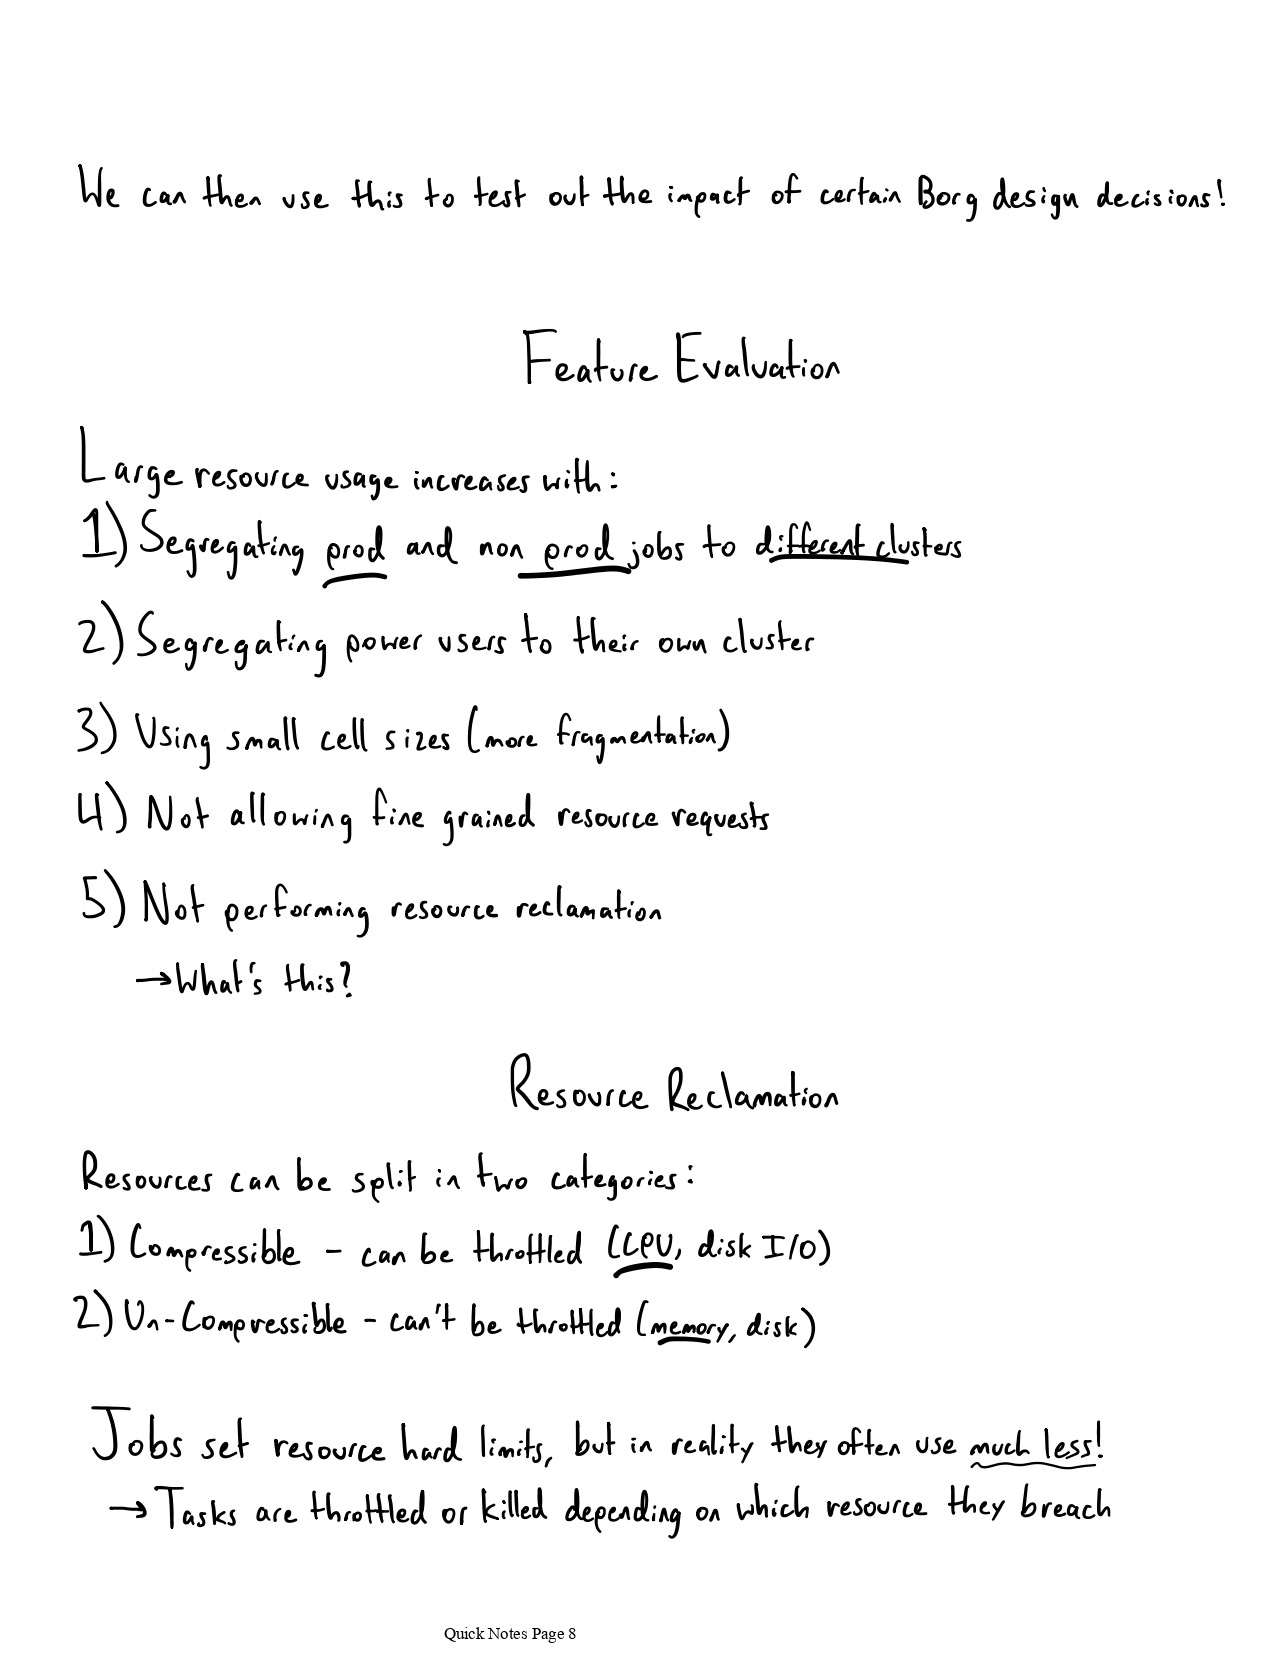 We can then use this to test out the impact of certain Borg design decisions!
Feature Evaluation
Large resource usage increases with:
1) Segregating prod and non prod jobs to different clusters
2) Segregating power users to their own cluster
3) Using small cell sizes (more fragmentation)
4) Not allowing fine grained resource requests
5) Not performing resource reclamation
→ What's this?
Resource Reclamation
Resources can be split in two categories:
1) Compressible - can be throttled (CPU, disk I/O)
2) Un-Compressible - can't be throttled (memory, disk)
Jobs set resource hard limits, but in reality they often use much less!
→ Tasks are throttled or killed depending on which resource they breach
Quick Notes Page 8